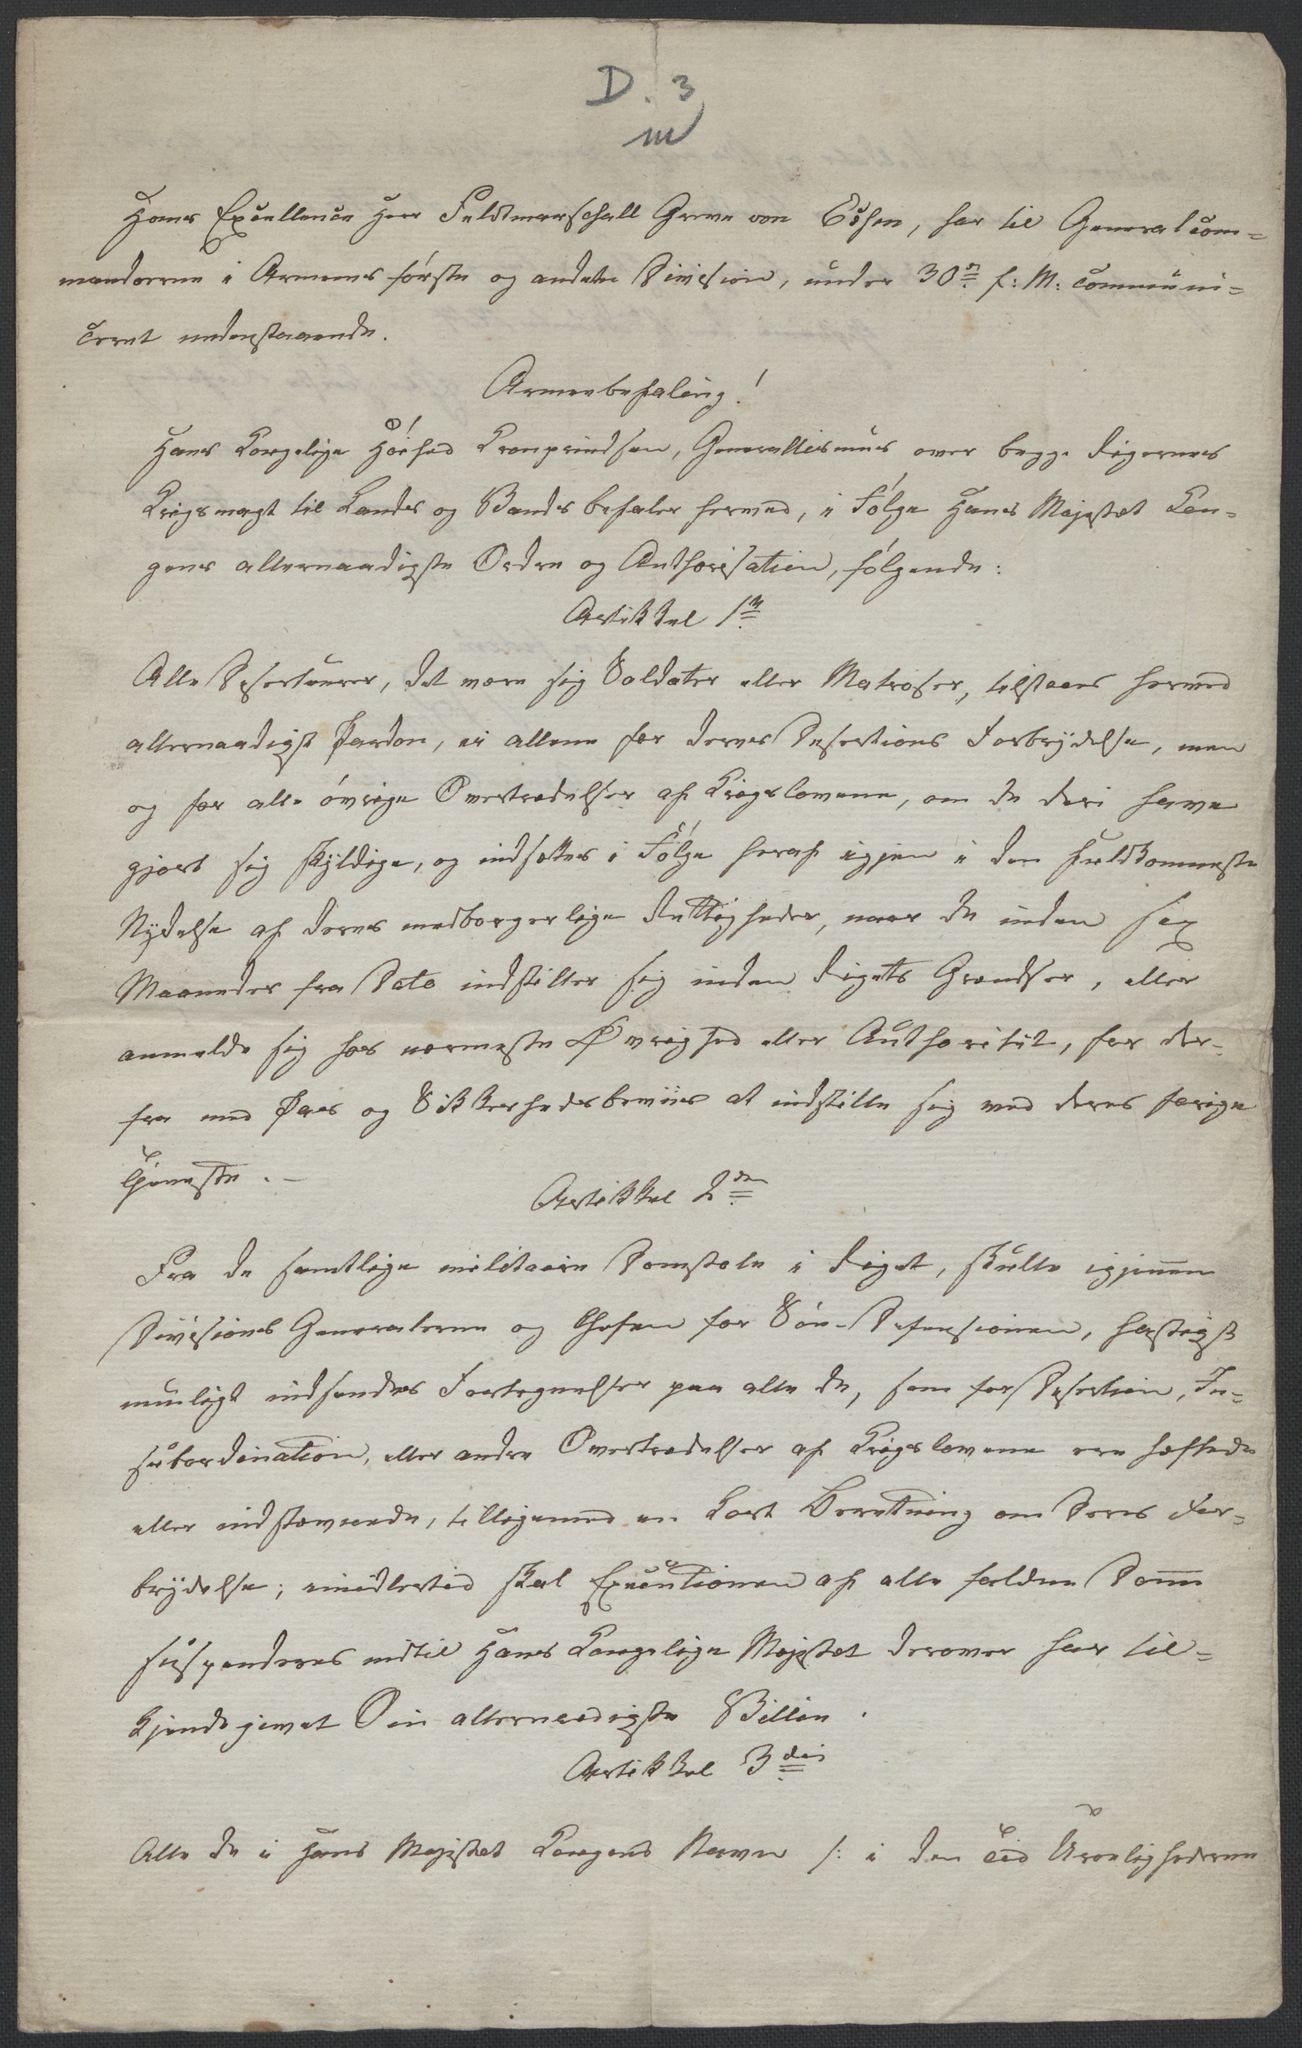 D. 3
m
Hans Excellence Herr Feldtmarschall Greve von Essen, har til Generalcom=
mandoerne i Armeens første og anden Division, under 30n f: M: communi=
ceret nedenstaaende.
Armeebefaling!
Hans Kongelige Höihed Kronprindsen, Generallisimus over begge Rigernes
Krigsmagt til Lands og Vands befaler hermed, i Følge Hans Majestæt Kon=
gens allernaadigste Ordre og Authorisation, følgende:
Artikkel 1n
Alle Deserteurer, det være sig Soldater eller Matroser, tilstaaes hermed
allernaadigst Pardon, ei allene for deres Desertions Forbrydelse, men
og for alle övrige Overtrædelser af Krigslovene, om de deri have
gjort sig skyldige, og indsættes i Følge heraf igjen i den fuldkomneste
Nydelse af deres medborgerlige Rettigheder, naar de inden sex
Maaneder fra Dato indstiller sig inden Rigets Grændser, eller
anmelde sig hos nærmeste Øvrighed eller Authoritet, for der=
fra med Pas og Sikkerhedsbeviis at indstille sig ved deres forige
Tjeneste. –
Artikkel 2den
Fra de samtlige militaire Domstole i Riget, skulle igjennem
Divisions Generalerne og Chefen for Söe-Defensionen, hastigst
muligt indsendes Fortegnelser paa alle de, som for Desertion, In=
subordination, eller andre Overtrædelser af Krigslovene ere hæftede
eller indstævnede, tilligemed en kort Beretning om deres For=
brydelse; imidlertid skal Executionen af alle fældede Domme
suspenderes indtil Hans Kongelige Majestet derover har til=
kjendegivet Sin allernaadigste Villie.
Artikkel 3die
Alle de i Hans Majestet Kongens Navn /: i den Tid Uroelighederne